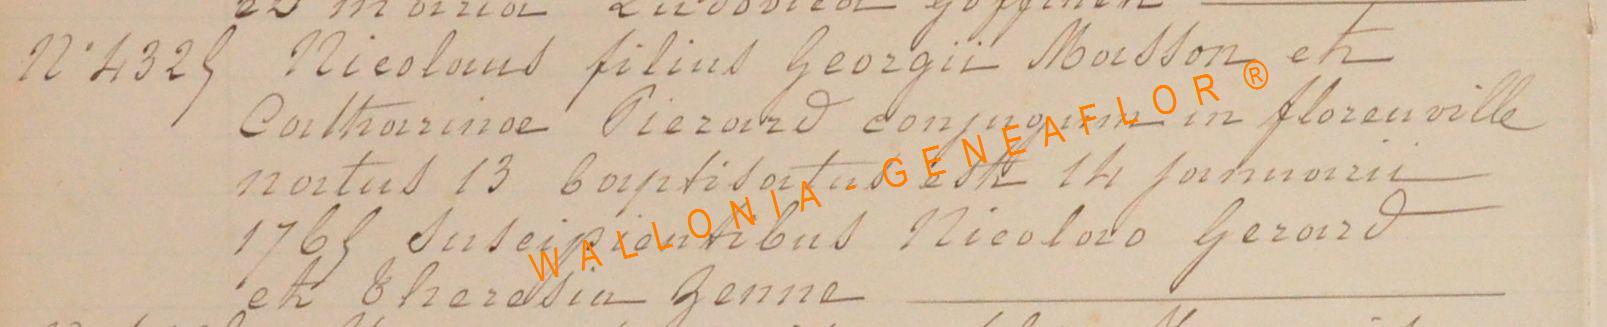 et maria Ludovica Goffinet
N° 4325 Nicolaus filius Georgii Masson et
Catharinae Pierard conjugum in florenville
natus 13 baptisatus est 14 januarii
1765 suscipientibus Nicolao Gerard
et Theresia Zenne
WALLONIA-GENEAFLOR®